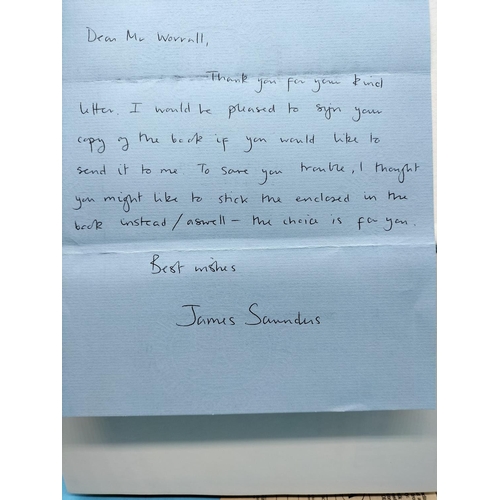 Dear Mr Worrall,
Thank you for your kind
letter. I would be pleased to sign your
copy of the book if you would like to
send it to me. To save you trouble, I thought
you might like to stick the enclosed in the
book instead/aswell - the choice is for you.
Best wishes
James Saunders